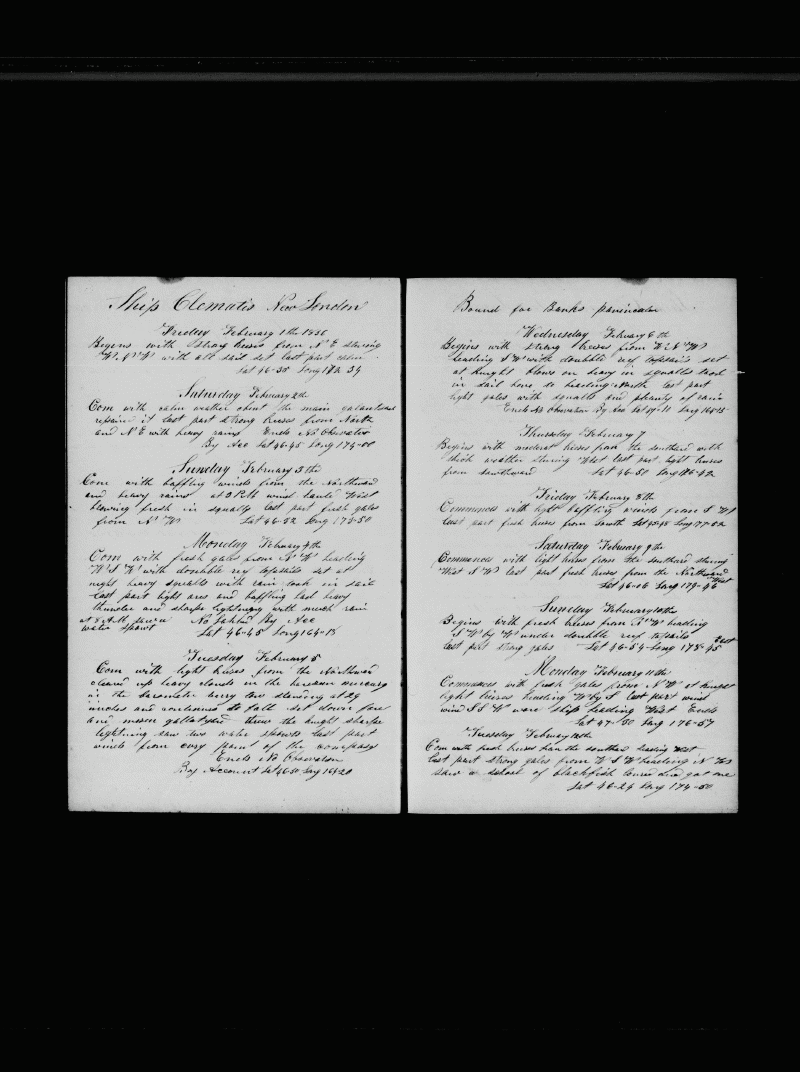 Ship Clematis New London
Friday February 1th 1850
Begins with strong breses from N E stering
W N W with all sail set last part calm
Lat 46-35 Long 172 34
Saturday February 2th
Com with calm weather obout the main galantsail
repairn it last part strong breses from North
and N E with heavy rains Ends No Obsvation
By Acc Lat 46-45 Long 174-00
Sunday February 3 the
Com with baffling winds from the Northward
and heavy rains at 2 P.M wind West
blowing fresh in squalls last part fresh gales
from N W Lat 46-52 Long 173-50
Monday February 4 the
Com with fresh gales from N W heading
W S W with doubble ref topsails set at
night heavy squalls with rain took in sail
last part light ares and baffling bad heavy
thunder and sharpe lightning with much rain
at 8 A.M. No By Acc
water spowt Lat 46-45 Long 164-15
Tuesday February 5
Com with light breses from the Northward
cleard up heavy clouds in the
in the barometer very low standing at 29
inches and continues to fall set down fore
and mesen threw the knight sharpe
lightning saw two water spowts last part
winds from evry point of the compass
Ends No Obsevation
By Account Lat 46-50 Long 168-20
Bound for Banks
Wednesday February 6 th
Begins with strong breses from W N W
heading S W with doubble ref topsails set
at knight blows on heavy in squalls took
in sail hove to heading North last part
light gales with squalls and plenty of rain
Ends No Obsevation By Acc Lat 47-11 Long 168-15
Thursday February 7
Begins with moderat breses from the southard with
thick weather stering West last part light breses
from southward Lat 46-50 Long 176-42
Friday February 8th
Commences with light baffling winds from S W
Last part fresh breses from South Lat 45-48 Long 177-52
Saturday February 9th
Commences with light breses from the southard stering
West S W last part fresh breses from the Northward
West
Lat 46-06 Long 179-46
Sunday February 10the
Begins with fresh breses from N W heading
S W by W under doubble ref topsails
last part strong gales Lat 46-54 Long 178-45 East
Monday February 11th
Commences with fresh gales from N W at knight
light breses heading W by S last part wind
wind S S W wore ship heading West Ends
Lat 47-50 Long 176-57
Tuesday February 12th
Com with fresh breses from the southard heading West
last part strong gales from W S W heading N W
saw a school of blackfish and got one
Lat 46-24 Long 174-50